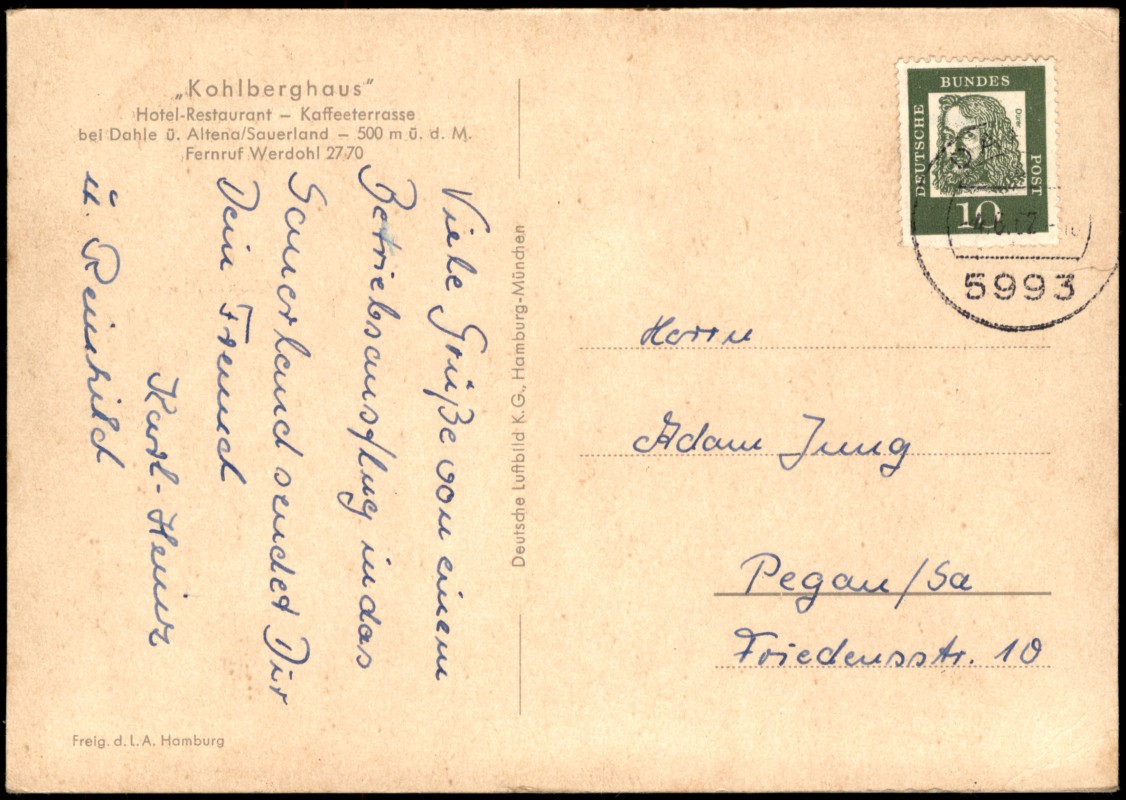 „Kohlberghaus"
Hotel-Restaurant – Kaffeeterrasse
bei Dahle ü. Altena/Sauerland – 500 m ü. d. M.
Fernruf Werdohl 2770
Viele Grüße von einem
Betriebsausflug in das
Sauerland sendet Dir
Dein Freund
Karl-Heinz
u. Reinhild
Freig. d. L. A. Hamburg
Deutsche Luftbild K. G., Hamburg-München
DEUTSCHE
BUNDES
POST
Dürer
10
5993
Herrn
Adam Jung
Pegau/Sa
Friedensstr. 10